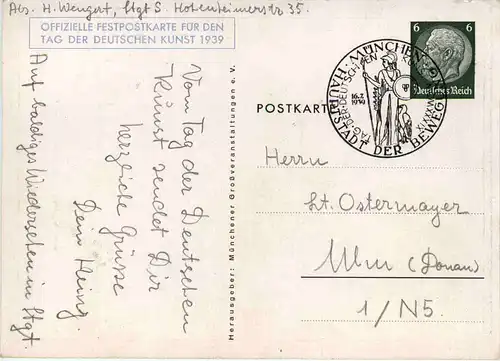 Abs. H. Wengert, Stgt S. Hohenheimerstr 35.
OFFIZIELLE FESTPOSTKARTE FÜR DEN
TAG DER DEUTSCHEN KUNST 1939
Vom Tag der Deutschen
Kunst sendet Dir
herzliche Grüsse
Dein Heinz.
Auf baldiges Wiedersehen in Stgt.
Herausgeber: Münchener Großveranstaltungen e. V.
POSTKARTE
MÜNCHEN
HAUPTSTADT DER BEWEGUNG
TAG DER DEUTSCHEN KUNST
16.7.
1939
6 6
Deutsches Reich
Herrn
Lt. Ostermayer
Ulm (Donau)
1/N5.